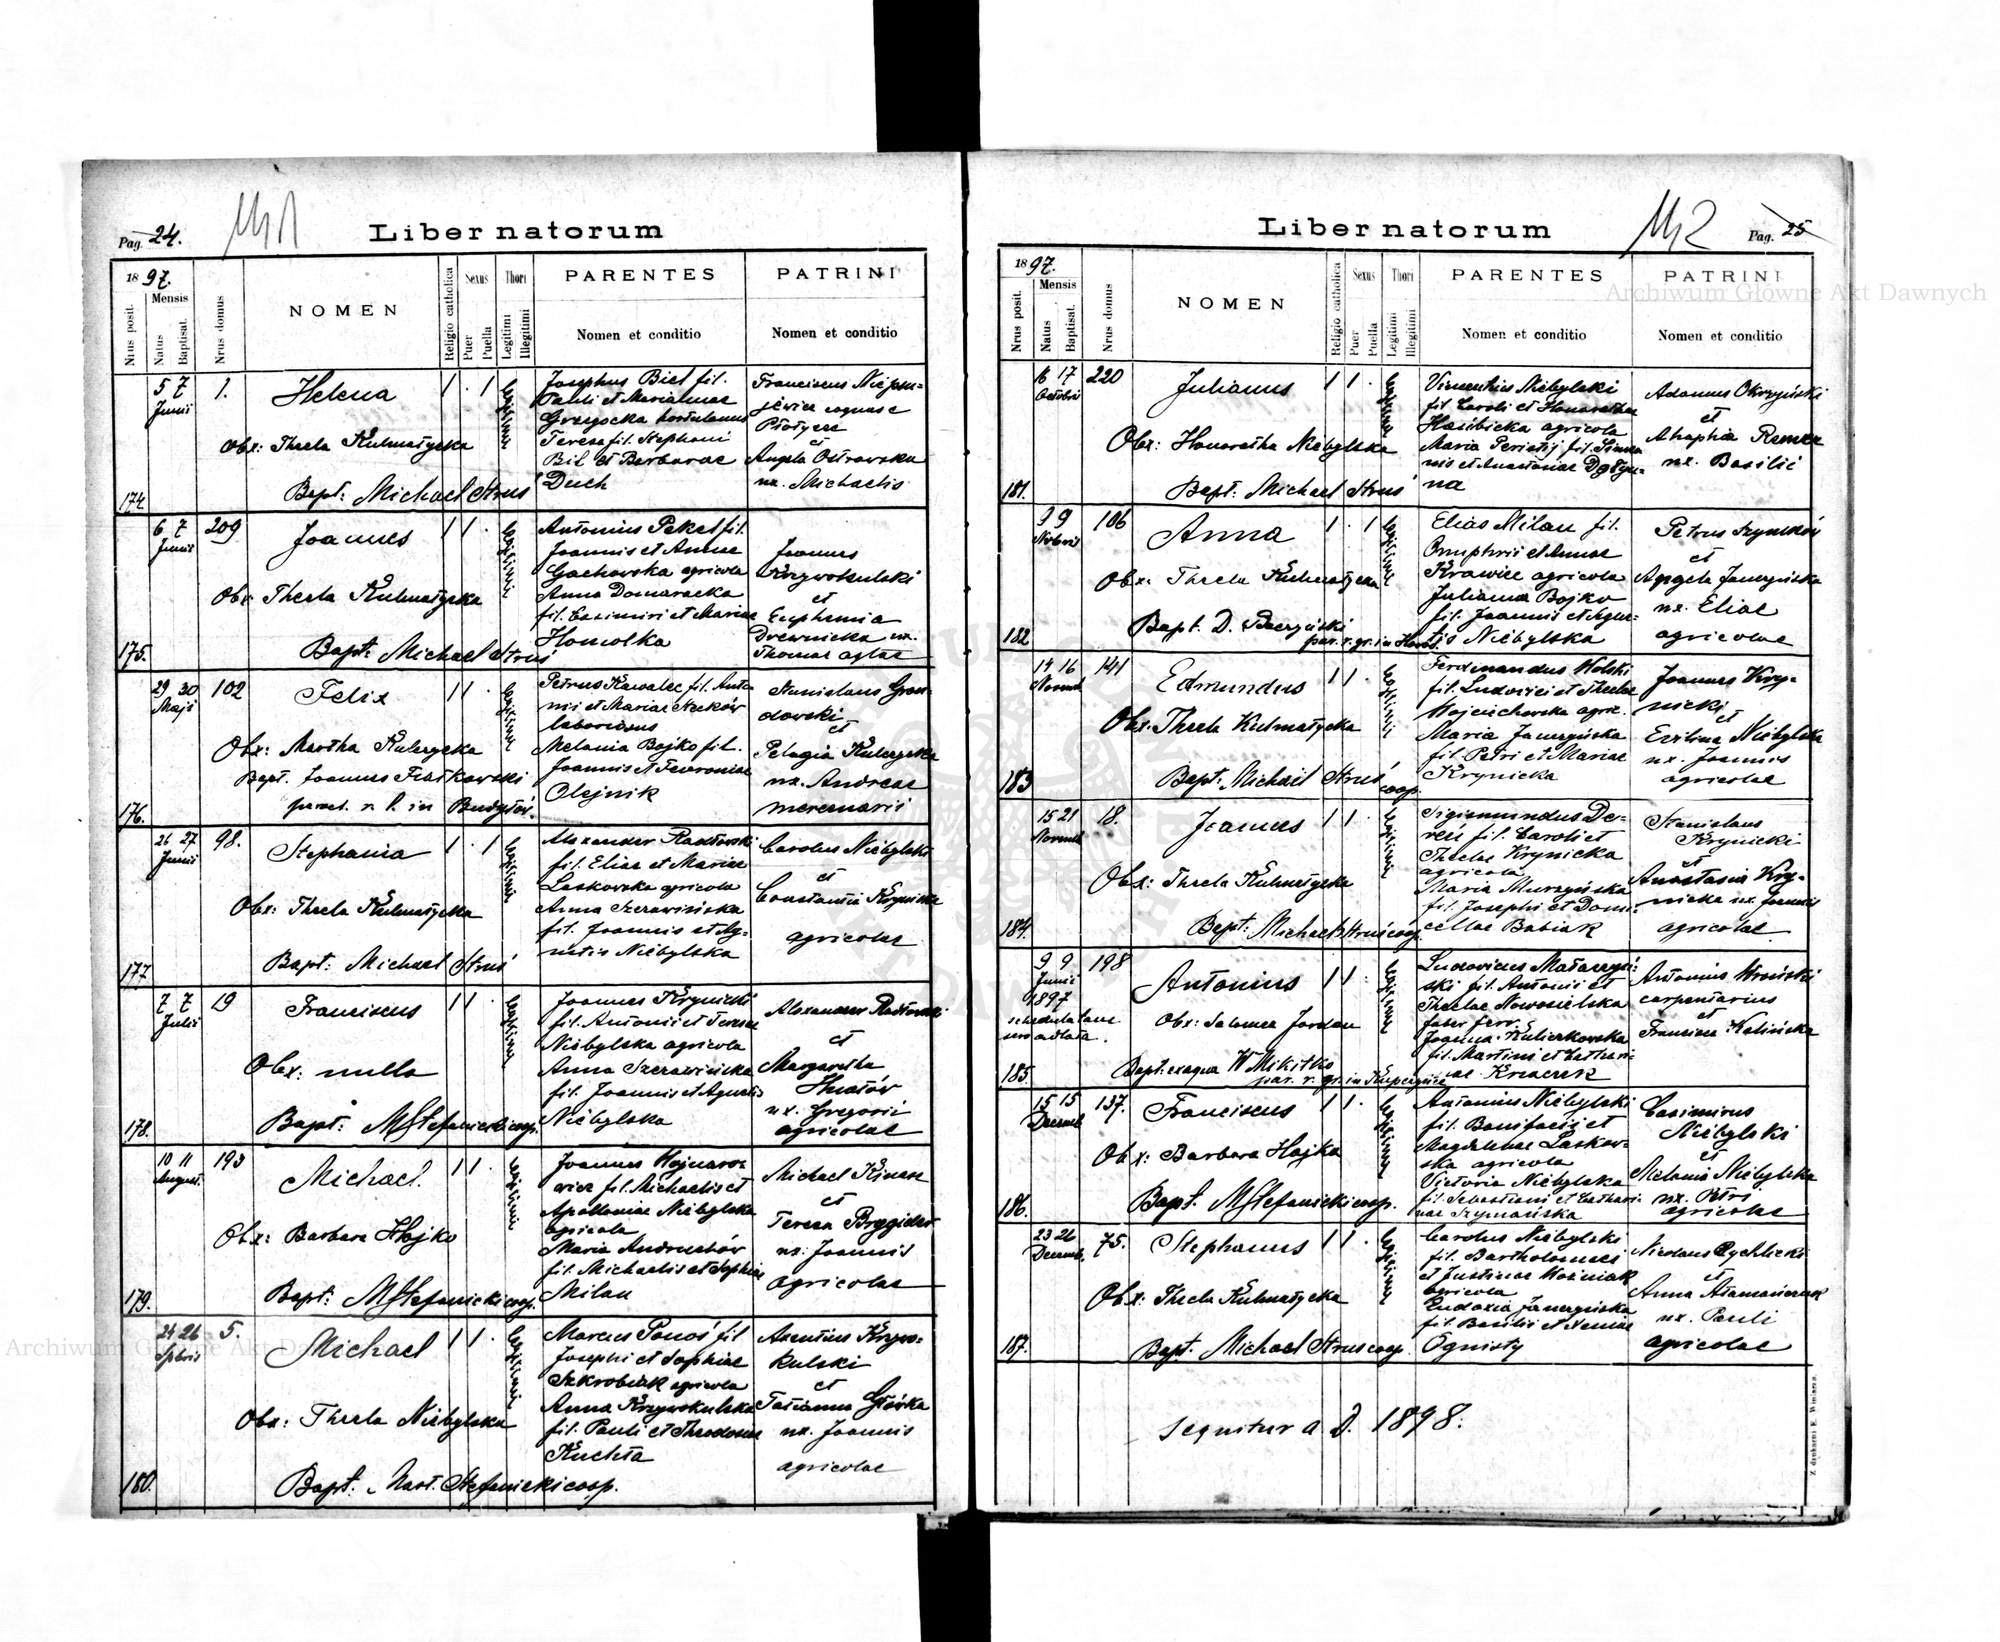 Pag. 24.
141
Liber natorum
1897.
Nrus posit.
Mensis
Natus
Baptisat.
Nrus domus
NOMEN
Religio catholica
Sexus
Puer
Puella
Thori
Legitimi
Illegitimi
PARENTES
Nomen et conditio
PATRINI
Nomen et conditio
174
5 7
Junii
1.
Helena
1 . 1
Legitimi
Obx: Thecla Kulmatycka
Bapt: Michael Struś
Josephus Biel fil.
Pauli et Mariannae
hortulanus
Teresa fil. Stephani
Bil et Barbarae
Duch
Franciscus
Płotycz
et
Angela Ostrowska
ux. Michaelis
175.
6 7
Junii
209
Joannes
1 1 .
Legitimi
Obx Thecla Kulmatycka
Bapt: Michael Struś
Antonius Pekel fil.
Joannis et Annae
Gachowska agricola
Anna Domaracka
fil. Casimiri et Mariae
Homolka
Joannes
Krzywokulski
et
Euphemia
Drewnicka ux.
Thomae aglae
176.
29 30
Maji
102
Felix
1 1 .
Legitimi
Obx: Martha Kuczycka
Bapt. Joannes Fiałkowski
paroch. r. l. in Budyłów.
Petrus Kawalec fil. Anto-
nii et Mariae Steckow
laboriosus
Melania Bojko fil.
Joannis et Fevroniae
Olejnik
Stanislaus Gron-
dowski
et
Pelagia
ux. Andreae
mercenarii
177
26 27
Junii
98.
Stephania
1 . 1
Legitimi
Obx: Thecla Kulmatycka
Bapt: Michael Struś
Alexander Radłowski
fil. Eliae et Mariae
Laskowska agricola
Anna Szerawińska
fil. Joannis et Ag-
netis Niebylska
Carolus Niebylski
et
Constantia Krynicka
agricolae
178.
7 7
Julii
19
Franciscus
1 1 .
Legitimi
Obx: nulla
Bapt: MStefanicki coop.
Joannes Krynicki
fil. Antonii et Teresae
Niebylska agricola
Anna Szerawińska
fil. Joannis et Agnetis
Niebylska
Alexander Radłowski
et
Margaretha
Hnatów
ux. Gregorii
agricolae
179.
10 11
August.
193
Michael.
1 1 .
Legitimi
Obx: Barbara Hojko
Bapt: MStefanicki coop.
Joannes Wojnaro-
wicz fil. Michaelis et
Apolloniae Niebylska
agricola
Maria Andruchów
fil. Michaelis et Sophiae
Milan
Michael Kinasz
et
Teresa
ux. Joannis
agricolae
180.
24 26
5.
Michael
1 1 .
Legitimi
Obx: Thecla Niebylska
Bapt. Mart. Stefanicki coop.
Marcus Panas fil
Josephi et Sophiae
Szkrobiak agricola
Anna Krzywokulska
fil. Pauli et Theodosiae
Kuchta
Axentius Krzywo-
kulski
et
Tatianna Główka
ux. Joannis
agricolae
Liber natorum
142
Pag. 25
1897.
Nrus posit.
Mensis
Natus
Baptisat.
Nrus domus
NOMEN
Religio catholica
Sexus
Puer
Puella
Thori
Legitimi
Illegitimi
PARENTES
Nomen et conditio
PATRINI
Nomen et conditio
181.
16 17
Octobris
220
Julianus
1 1 .
Legitimi
Obx: Honoratha Niebylska
Bapt: Michael Struś
Vincentius Niebylski
fil. Caroli et Honorathae
agricola
Maria fil. Simeo-
nis et Anastasiae
na
Adamus Okrzyński
et
Ahaphia
ux. Basilii
182
9 9
Novbris
106
Anna
1 . 1
Legitimi
Obx: Thecla Kulmatycka
Bapt. D.
par. r. gr. in
Elias Milan fil.
Onuphrii et Annae
Krawiec agricola
Julianna Bojko
fil. Joannis et Agne-
tis Niebylska
Petrus Szymków
et
Angela Janczyńska
ux. Eliae
agricolae
183
14 16
Novemb
141
Edmundus
1 1 .
Legitimi
Obx: Thecla Kulmatycka
Bapt: Michael Struś
coop.
Ferdinandus Wolski
fil. Ludovici et Theclae
Wojciechowska agric.
Maria Janczyńska
fil. Petri et Mariae
Krynicka
Joannes Kry-
nicki
et
Evilina Niebylska
ux. Joannis
agricolae
184.
15 21
Novemb
18.
Joannes
1 1 .
Legitimi
Obx: Thecla Kulmatycka
Bapt: Michael Struś coop.
Sigismundus De-
fil. Caroli et
Theclae Krynicka
agricola
Maria Murzyńska
fil. Josephi et Domi-
cellae Babiak
Stanislaus
Krynicki
et
Anastasia Kry-
nicka ux. Joannis
agricolae
185.
9 9
Junii
1897
198
Antonius
1 1 .
Legitimi
Obx: Salomea Jordan
Bapt: ex aqua W Mikitko
par. r. gr. in Kupczyńce
Ludovicus
ski fil. Antonii et
Theclae Nowosielska
faber ferr.
Joanna
fil. Martini et Cathari-
nae
Antonius Wroński
carpentarius
et
Francisca Kalinicka
186.
15 15
Decemb.
137.
Franciscus
1 1 .
Legitimi
Obx: Barbara Hojko
Bapt. MStefanicki coop.
Antonius Niebylski
fil. Bonifacii et
Magdalenae Laskow-
ska agricola
Victoria Niebylska
fil. Sebastiani et Cathari-
nae Szymańska
Casimirus
Niebylski
et
Melania Niebylska
ux. Petri
agricolae
187.
23 26
Decemb.
75.
Stephanus
1 1 .
Legitimi
Obx: Thecla Kulmatycka
Bapt. Michael Struś coop.
Carolus Niebylski
fil. Bartholomaei
et Justinae Woźniak
agricola
Eudoxia Janczyńska
fil. Basilii et Xeniae
Ognisty
Nicolaus Rychlicki
et
Anna Atamańczuk
ux. Pauli
agricolae
Sequitur a. D. 1898.
Z drukarni E. Winiarza.
Archiwum Główne Akt Dawnych
Archiwum Główne Akt Dawnych